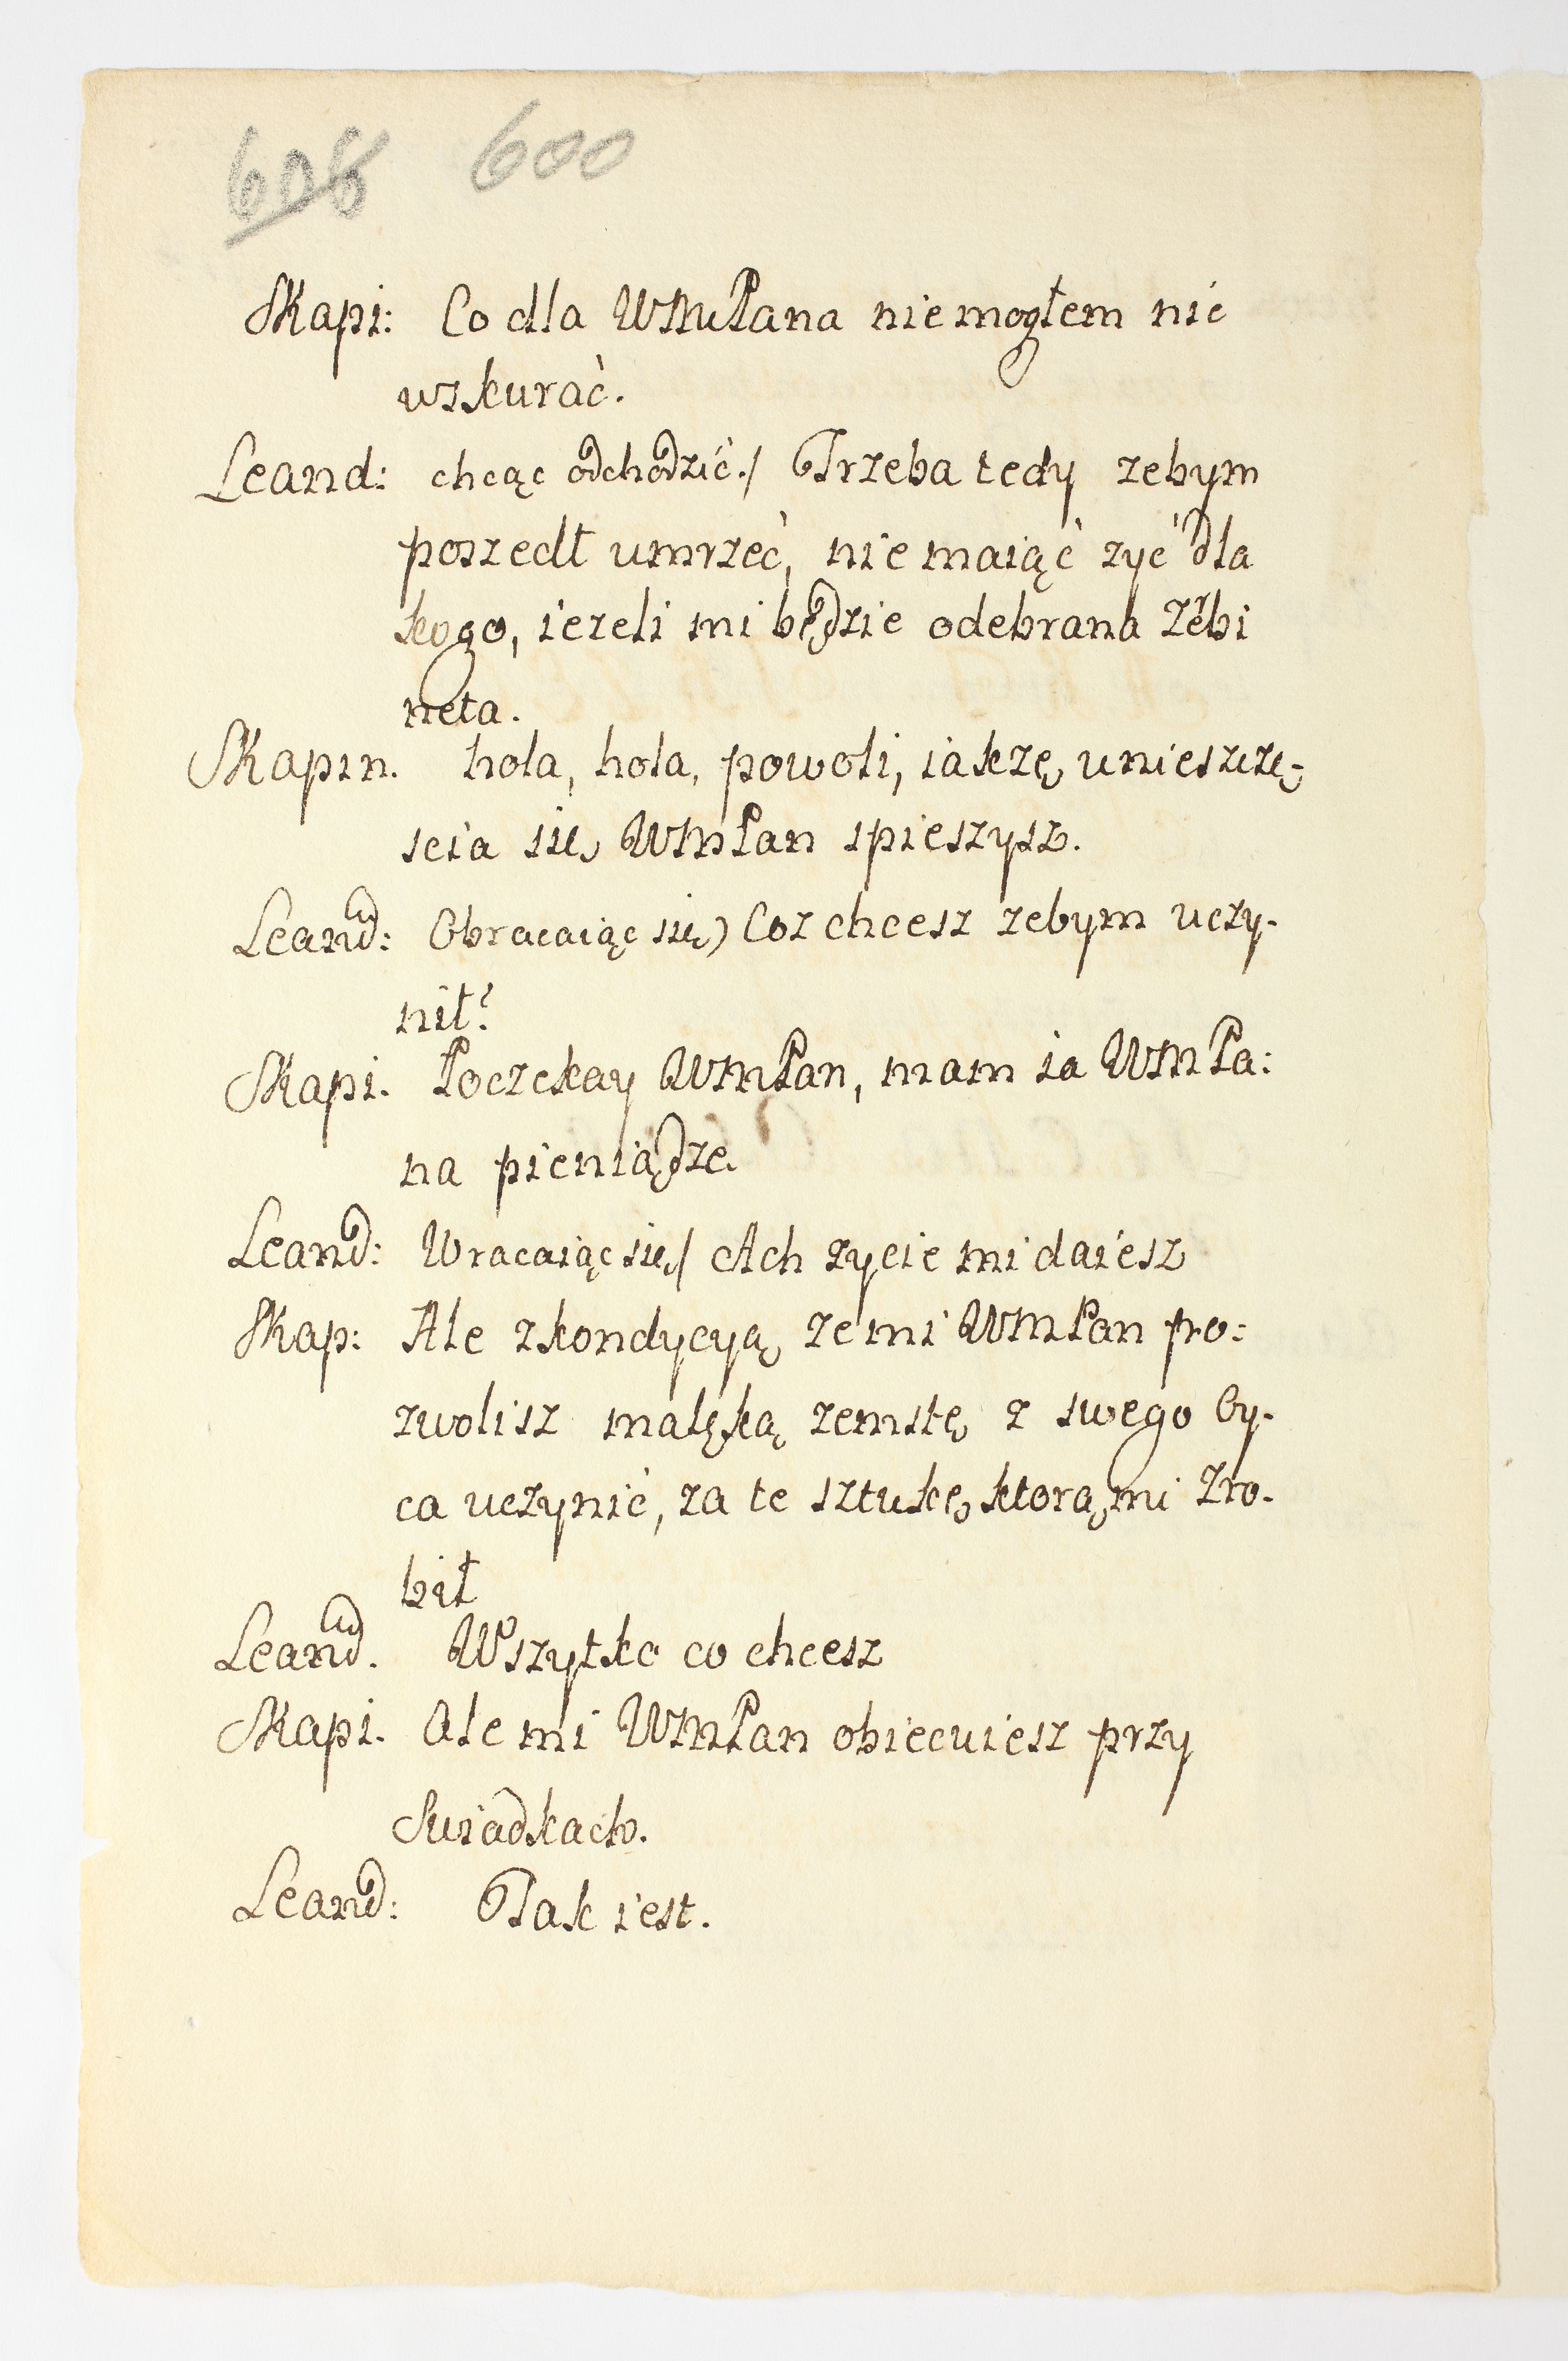 608 600
Skapi: Co dla WMPana nie mogłem nic
wskurać.
Leand: chcąc odchodzić./ Trzeba tedy zebym
poszedł umrzeć, nie maiąć zyć dla
kogo, iezeli mi będzie odebrana Zěbi
neta.
Skapin. hola, hola, powoli, iakzę unieszczę-
scia się WMPan spieszysz.
Leand: Obracaiąc się) Coz chcesz zebym uczy-
nił?
Skapi. Poczekay WMPan, mam ia WMPa:
na pieniądze.
Leand: Wracaiąc się/ Ach zycie mi daiesz
Skap: Ale z kondycyą ze mi WMPan po:
zwolisz malęką zemstę z swego Oy-
ca uczynić, za te sztukę ktorą mi zro-
bił
Leand. Wszytko co chcesz
Skapi. Ale mi WMPan obiecuiesz przy
Swiadkach.
Leand: Tak iest.